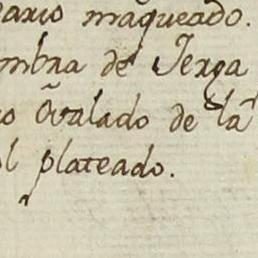 dario maqueado.
mbra de Jerga
o Ovalado de la
l plateado.